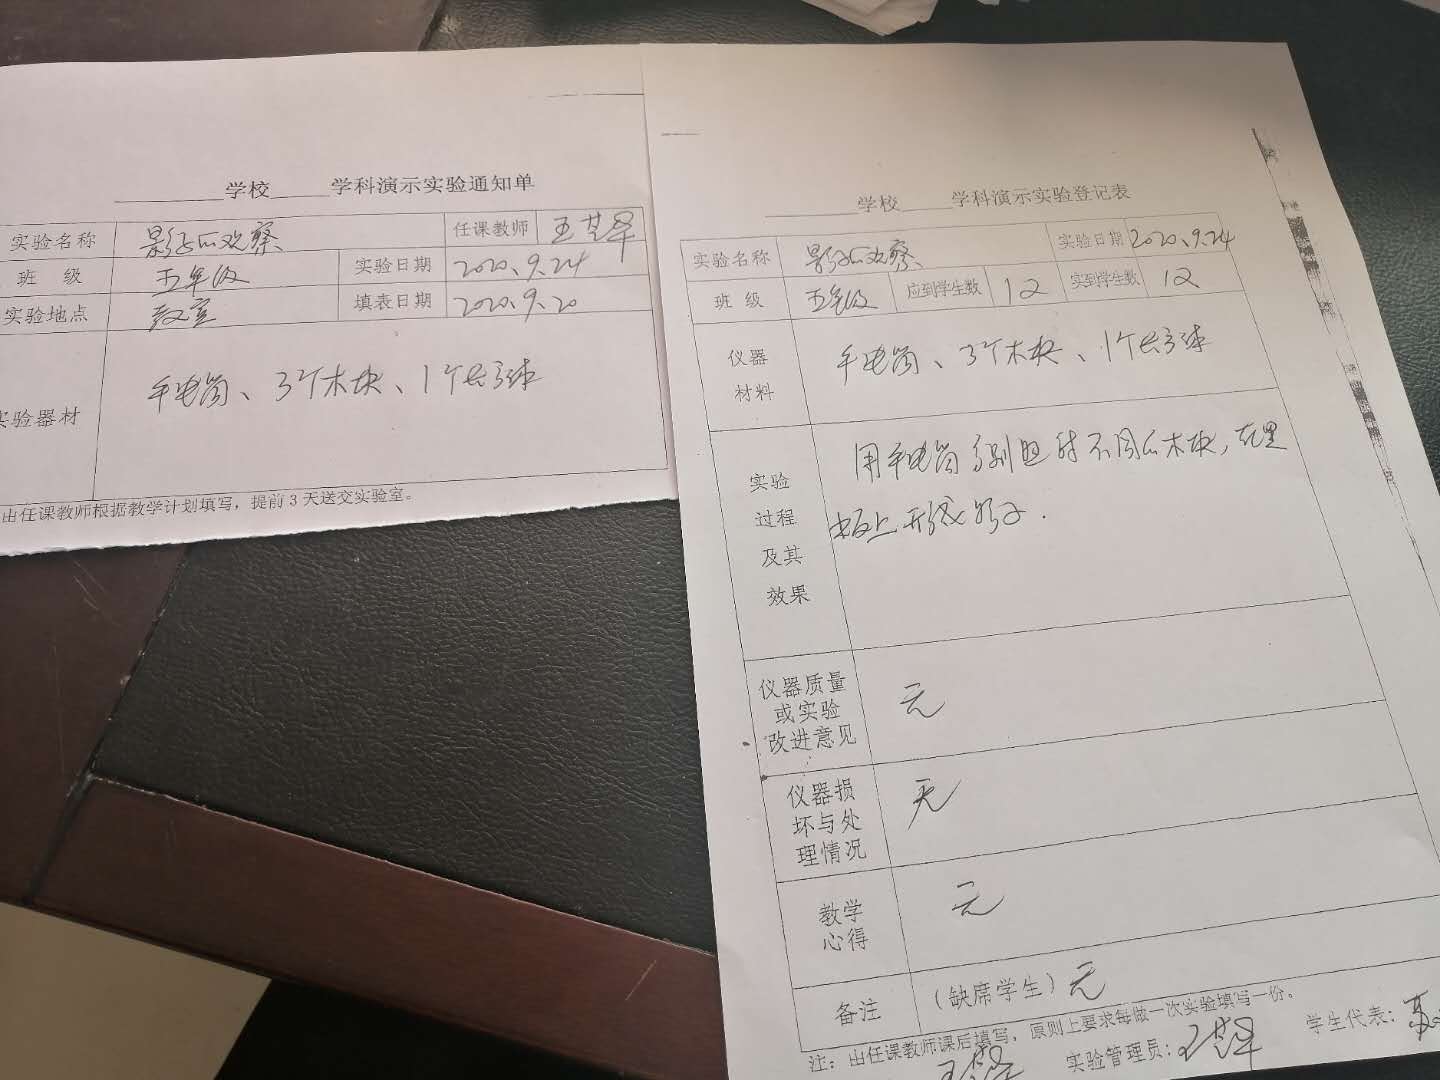 学校 学科演示实验通知单
实验名称 影子的观察 任课教师
班 级 五年级 实验日期 2020.9.24
实验地点 教室 填表日期 2020.9.20
实验器材 手电筒、3个木块、1个长方体
出任课教师根据教学计划填写，提前3天送交实验室。
学校 学科演示实验登记表
实验名称 影子的观察 实验日期 2020.9.24
班 级 五年级 应到学生数 12 实到学生数 12
仪器
材料
手电筒、3个木块、1个长方体
实验
过程
及其
效果
用手电筒分别照射不同的木块，在黑
板上形成影子.
仪器质量
或实验
改进意见
无
仪器损
坏与处
理情况
无
教学
心得
无
备注 (缺席学生) 无
注：出任课教师课后填写，原则上要求每做一次实验填写一份。
实验管理员： 学生代表：